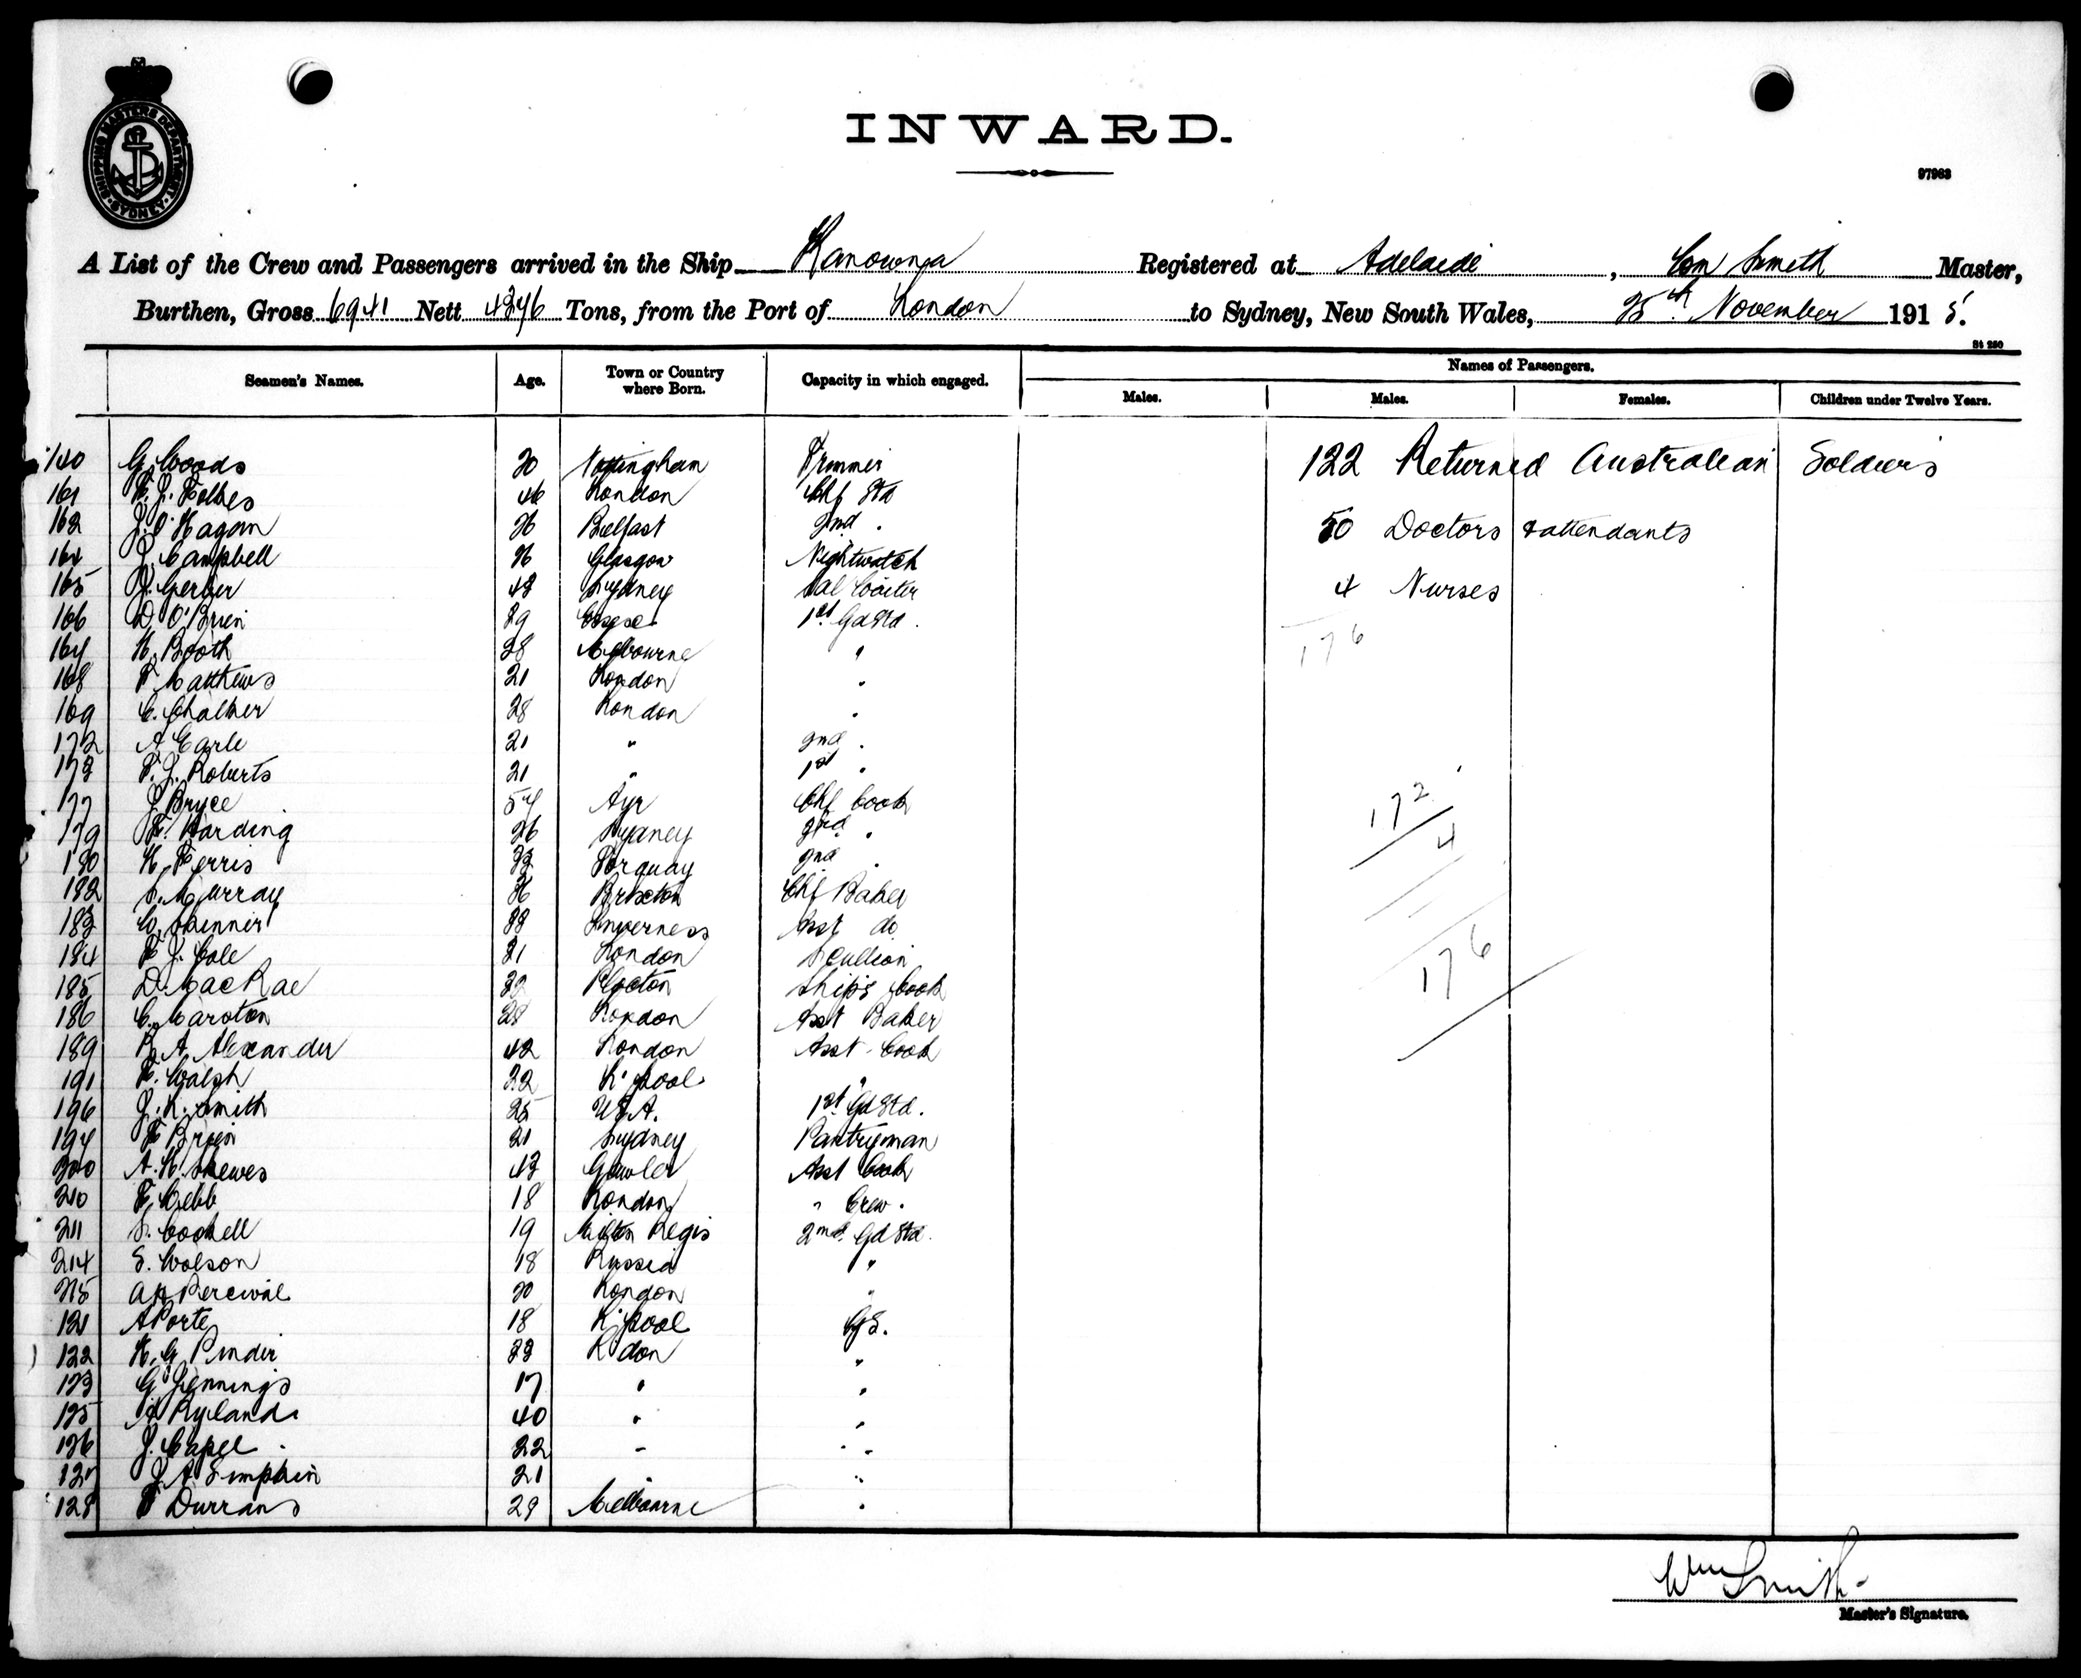 SHIPPING MASTERS DEPARTMENT
SYDNEY
INWARD.
97963
A List of the Crew and Passengers arrived in the Ship Kanowna Registered at Adelaide, Wm Smith Master,
Burthen, Gross 6941 Nett Tons, from the Port of London to Sydney, New South Wales, 25th November 1915.
St 250
Seamen's Names. Age. Town or Country where Born. Capacity in which engaged. Names of Passengers.
Males. Males. Females. Children under Twelve Years.
140 G. Woods 20 Nottingham Trimmer 122 Returned Australian Soldiers
161 46 London Chf Std
162 J. O'Hagan Belfast 2nd " 50 Doctors & attendants
164 J. Campbell Glasgow Nightwatch
165 J. Gerber 43 Sydney Sal Waiter 4 Nurses
166 D. O'Brien 39 Essex 1st Gd Std.
167 H. Booth 28 Melbourne " 176
168 F. Matthews 21 London "
169 C. Chalker 28 London "
172 A. Earle 21 " 2nd "
173 F. J. Roberts 21 " 1st "
177 J. Bryce 57 Ayr Chf Cook 172
179 F. Harding 26 Sydney " 4
180 H. Ferris 33 Torquay 2nd "
182 S. Murray Brixton Chf Baker
183 W. Skinner 33 Inverness Asst do
184 F. J. Cole 21 London Scullion 176
185 D. MacRae 32 Plocton Ships Cook
186 C. Marston 28 London Asst Baker
189 R. A. Alexander 42 London Asst Cook
191 F. Walsh 22 L'pool "
196 J. H. Smith 25 U.S.A. 1st Gd Std.
197 F. Brien 21 Sydney Pantryman
200 A. H. Skewes 43 Gawler Asst Cook
210 F. Webb 18 London " Crew.
211 S. Cockell 19 Milton Regis 2nd Gd Std.
214 S. Wolson 18 Russia "
215 A H Percival 20 London "
121 A Porter 18 L'pool G.S.
122 H. G. Pinder 33 L'don "
123 G. Jennings 17 " "
125 H Rylands 40 " "
126 J. Capel 22 " "
127 J. A Simpkin 21 "
128 F Durrans 29 Melbourne "
Wm Smith
Master's Signature.